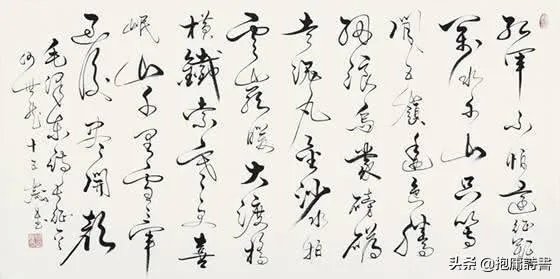 紅軍不怕遠征難
萬水千山只等
閒五嶺逶迤騰
細浪烏蒙磅礴
走泥丸金沙水拍
雲崖暖大渡橋
橫鐵索寒更喜
岷山千里雪三軍
過後盡開顏
毛澤東詩長征
十三歲書
头条 @抱庸詩書